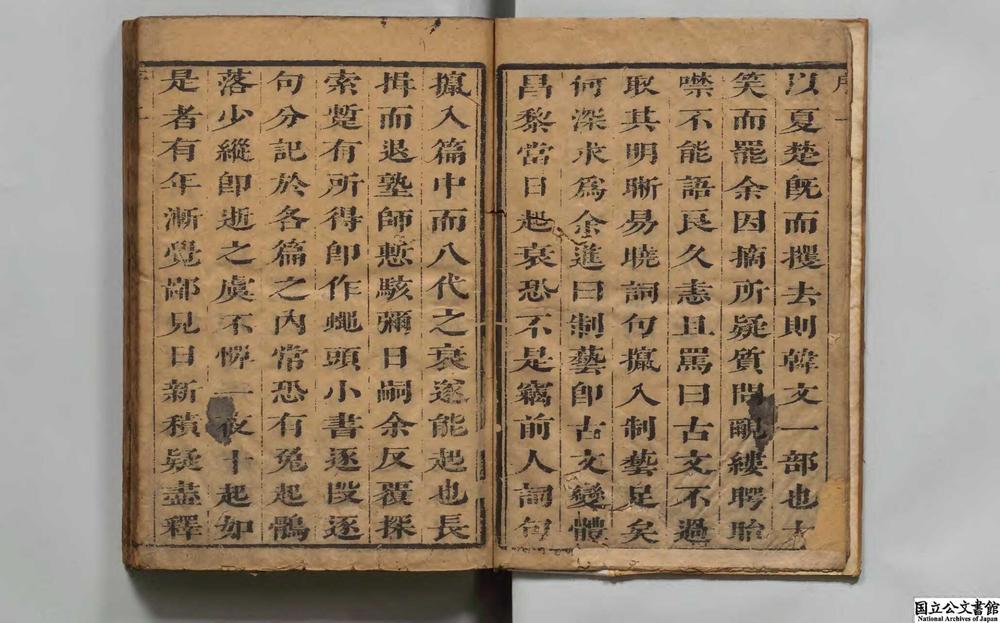 序 一
以夏楚旣而攫去則韓文一部也大
笑而罷余因摘所疑質問覼縷腭眙
噤不能語良久恚且罵曰古文不過
取其明晰易曉詞句攛入制藝足矣
何深求爲余進曰制藝卽古文變體
昌黎當日起衰恐不是竊前人詞句
攛入篇中而八代之衰遂能起也長
揖而退塾師慙駭彌日嗣余反覆探
索蹔有所得卽作蠅頭小書逐段逐
句分記於各篇之內常恐有兔起鶻
落少縱卽逝之虞不憚一夜十起如
是者有年漸覺鄙見日新積疑盡釋
國立公文書館
National Archives of Japan